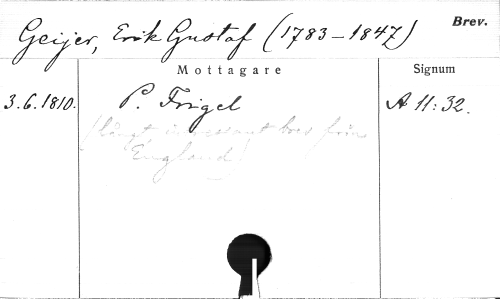 Geijer, Erik Gustaf (1783–1847)
Brev.
Mottagare
Signum
3.6.1810.
P. Frigel
A 11:32.
(långt intressant brev från
England)